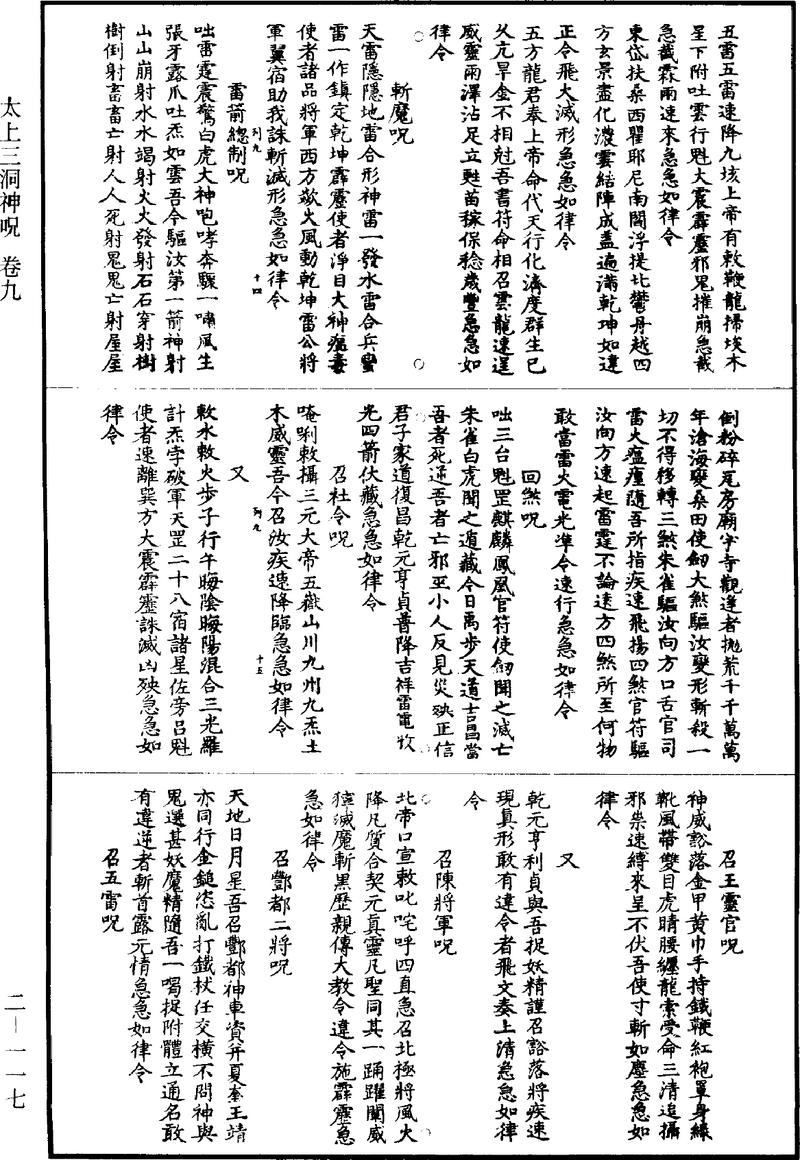 太上三洞神呪　卷九
二—一一七
丑雷五雷速降九垓上帝有敕鞭龍掃埃木
星下附吐雲行魁大震霹靂邪鬼摧崩急截
急截霖雨速來急急如律令
東岱扶桑西瞿耶尼南閻浮提北鬱丹越四
方玄景盡化濃雲結陣成蓋遍滿乾坤如違
正令飛大滅形急急如律令
五方龍君奉上帝命代天行化濟度群生已
久亢旱金不相尅吾書符命相召雲龍速逞
威靈雨澤沾足立甦苗稼保稔歲豐急急如
律令
斬魔呪
天雷隱隱地雷合形神雷一發水雷合兵蠻
雷一作鎮定乾坤霹靂使者淨目大神瘟毒
使者諸品將軍西方歘火風動乾坤雷公將
軍翼宿助我誅斬滅形急急如律令
列九　十四
雷箭總制呪
咄雷霆震驚白虎大神咆哮奔驟一嘯風生
張牙露爪吐炁如雲吾今驅汝第一箭神射
山山崩射水水竭射火火發射石石穿射樹
樹倒射畜畜亡射人人死射鬼鬼亡射屋屋
倒粉碎瓦房廟宇寺觀逢者拋荒千千萬萬
年滄海變桑田使劒大煞驅汝變形斬殺一
切不得移轉三煞朱雀驅汝向方口舌官司
雷火瘟㾮隨吾所指疾速飛揚四煞官符驅
汝向方速起雷霆不論遠方四煞所至何物
敢當雷火電光準令速行急急如律令
回煞呪
咄三台魁罡麒麟鳳凰官符使劒聞之滅亡
朱雀白虎聞之遁藏今日禹步天道吉昌當
吾者死逋吾者亡邪巫小人反見災殃正信
君子家道復昌乾元亨貞普降吉祥雷電收
光四箭伏藏急急如律令
召社令呪
唵唎敕攝三元大帝五嶽山川九州九炁土
木威靈吾今召汝疾速降臨急急如律令
列九　十五
又
敕水敕火步子行午晦陰晦陽混合三光羅
計炁孛破軍天罡二十八宿諸星佐旁呂魁
使者速離巽方大震霹靂誅滅凶殃急急如
律令
召王靈官呪
神威豁落金甲黃巾手持鐵鞭紅袍罩身綠
靴風帶雙目虎睛腰纏龍索受命三清追攝
邪祟速縛來呈不伏吾使寸斬如塵急急如
律令
又
乾元亨利貞與吾捉妖精謹召豁落將疾速
現真形敢有違令者飛文奏上清急急如律
令
召陳將軍呪
北帝口宣敕叱咤呼四直急召北極將風火
降凡質合契元真靈凡聖同其一踊躍闡威
獰滅魔斬黑歷親傳大教令違令施霹靂急
急如律令
召酆都二將呪
天地日月星吾召酆都神車資并夏秦王靖
亦同行金鎚恣亂打鐵杖任交橫不問神與
鬼還甚妖魔精隨吾一喝捉附體立通名敢
有違逆者斬首露元情急急如律令
召五雷呪